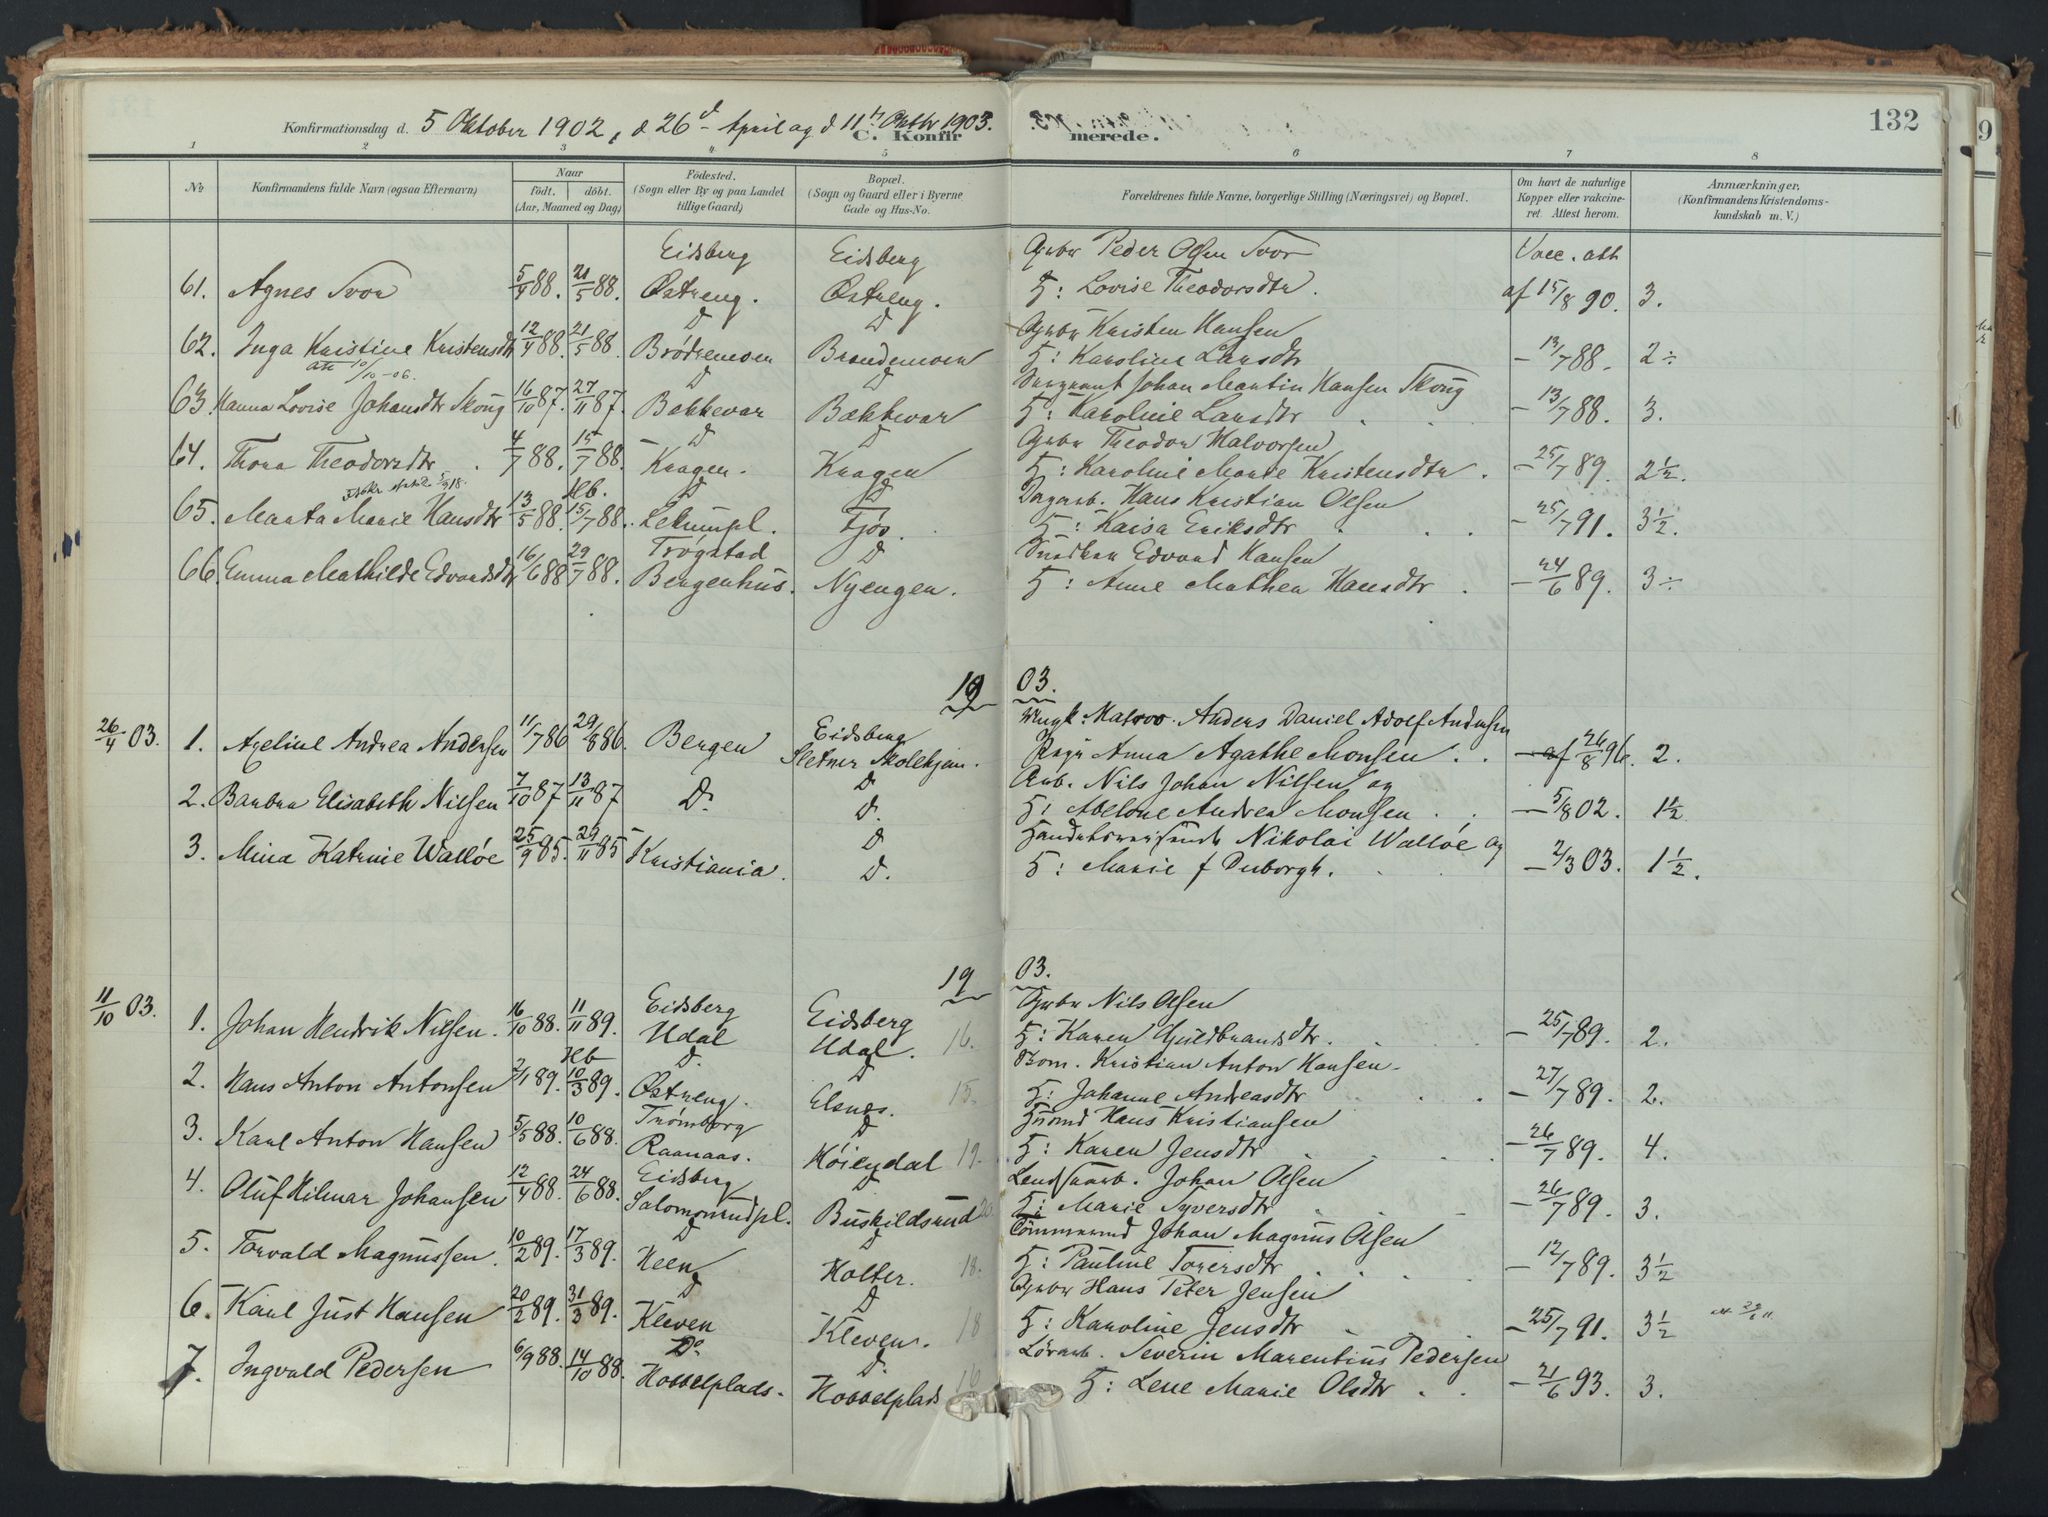 132
Konfirmationsdag d. 5 Oktober 1902, d 26d April og d 11te Oktbr 1903.
C. Konfirmerede.
1 2 3 4 5 6 7 8
No
Konfirmandens fulde Navn (ogsaa Efternavn)
Naar
födt. döbt.
(Aar, Maaned og Dag)
Födested.
(Sogn eller By og paa Landet
tillige Gaard)
Bopæl.
(Sogn og Gaard eller i Byerne
Gade og Hus-No.
Forældrenes fulde Navne, borgerlige Stilling (Næringsvei) og Bopæl.
Om havt de naturlige
Kopper eller vakcine-
ret. Attest herom.
Anmærkninger,
(Konfirmandens Kristendoms-
kundskab m. V.)
Eidsberg Eidsberg Grbr Peder Olsen Svor Vacc. att
61. Agnes Svor 5/4 88. 21/5 88. Østreng. Østreng. H: Lovise Theodorsdtr. af 15/8 90. 3.
D D Grbr Kristen Hansen
62. Inga Kristine Kristensdtr 12/4 88. 21/5 88. Brödremoen Brendemoen H: Karoline Larsdtr – 13/7 88. 2 ÷
att 10/10-06. D D Sergeant Johan Martin Hansen Skoug
63. Hanna Lovise Johansdtr Skoug 16/10 87. 27/11 87. Bakkevar Bakkevar H: Karoline Larsdtr – 13/7 88. 3.
D D Grbr Theodor Halvorsen
64. Thora Theodorsdtr. 4/7 88. 15/7 88. Kragen. Kragen H: Karoline Marie Kristensdtr. – 25/7 89. 2 1/2.
Hb. D D Dagarb. Hans Kristian Olsen
65. Marta Marie Hansdtr 13/5 88. 15/7 88. Lekumpl. Tjös. H: Kaisa Eriksdtr – 25/7 91. 3 1/2.
Trögstad D Snedker Edvard Hansen
66. Emma Mathilde Edvardsdtr 16/6 88. 29/7 88. Bergenhus. Nyengen. H: Anne Mathea Hansdtr. – 24/6 89. 3 ÷
1903.
Eidsberg Ungk. Matros. Anders Daniel Adolf Andersen
26/4 03. 1. Axeline Andrea Andersen 11/7 86. 29/8 86. Bergen Sletner Skolehjem. Pige Anna Agathe Monsen. – af 26/8 96. 2.
D Arb. Nils Johan Nilsen og
2. Barbra Elisabeth Nilsen 7/10 87. 13/11 87 D. D. H: Abelone Andrea Monsen. – 5/8 02. 1 1/2
D Handelsreisende Nikolai Walløe og
3. Mina Katrine Walløe 25/9 85. 29/11 85 Kristiania. D. H: Marie f Duborgh. – 2/3 03. 1 1/2.
1903.
Eidsberg Eidsberg Grbr Nils Olsen
11/10 03. 1. Johan Hendrik Nilsen. 16/10 88. 11/11 89. Udal Udal. 16. H: Karen Guldbrandsdtr. – 25/7 89. 2.
Hb D. D Bom. Kristian Anton Hansen
2. Hans Anton Antonsen 2/1 89. 10/3 89. Østreng. Elsnes. 15. H: Johanne Andreasdtr – 27/7 89. 2.
Trömborg D Husmd Hans Kristiansen
3. Karl Anton Hansen 5/5 88. 10/6 88. Raanaas. Höiendal 19. H: Karen Jensdtr – 26/7 89. 4.
Eidsberg D Johan Olsen
4. Oluf Hilmar Johansen 12/4 88. 24/6 88. Salomonrudpl. Buskildsrud 20. H: Marie Syversdtr – 26/7 89. 3.
D D Tömmermd Johan Magnus Olsen
5. Torvald Magnussen. 10/2 89. 17/3 89. Heen Holter. 18. H: Pauline Torersdtr – 12/7 89. 3 1/2
D D Grbr Hans Peter Jensen
6. Karl Just Hansen 20/2 89. 31/3 89. Kleven Kleven. 18 H: Karoline Jensdtr – 25/7 91. 3 1/2
Do D. Severin Marentius Pedersen
7. Ingvald Pedersen 6/9 88. 14/10 88. Hobbelplads. Hobbelplads 16 H: Lene Marie Olsdtr – 21/6 93. 3.